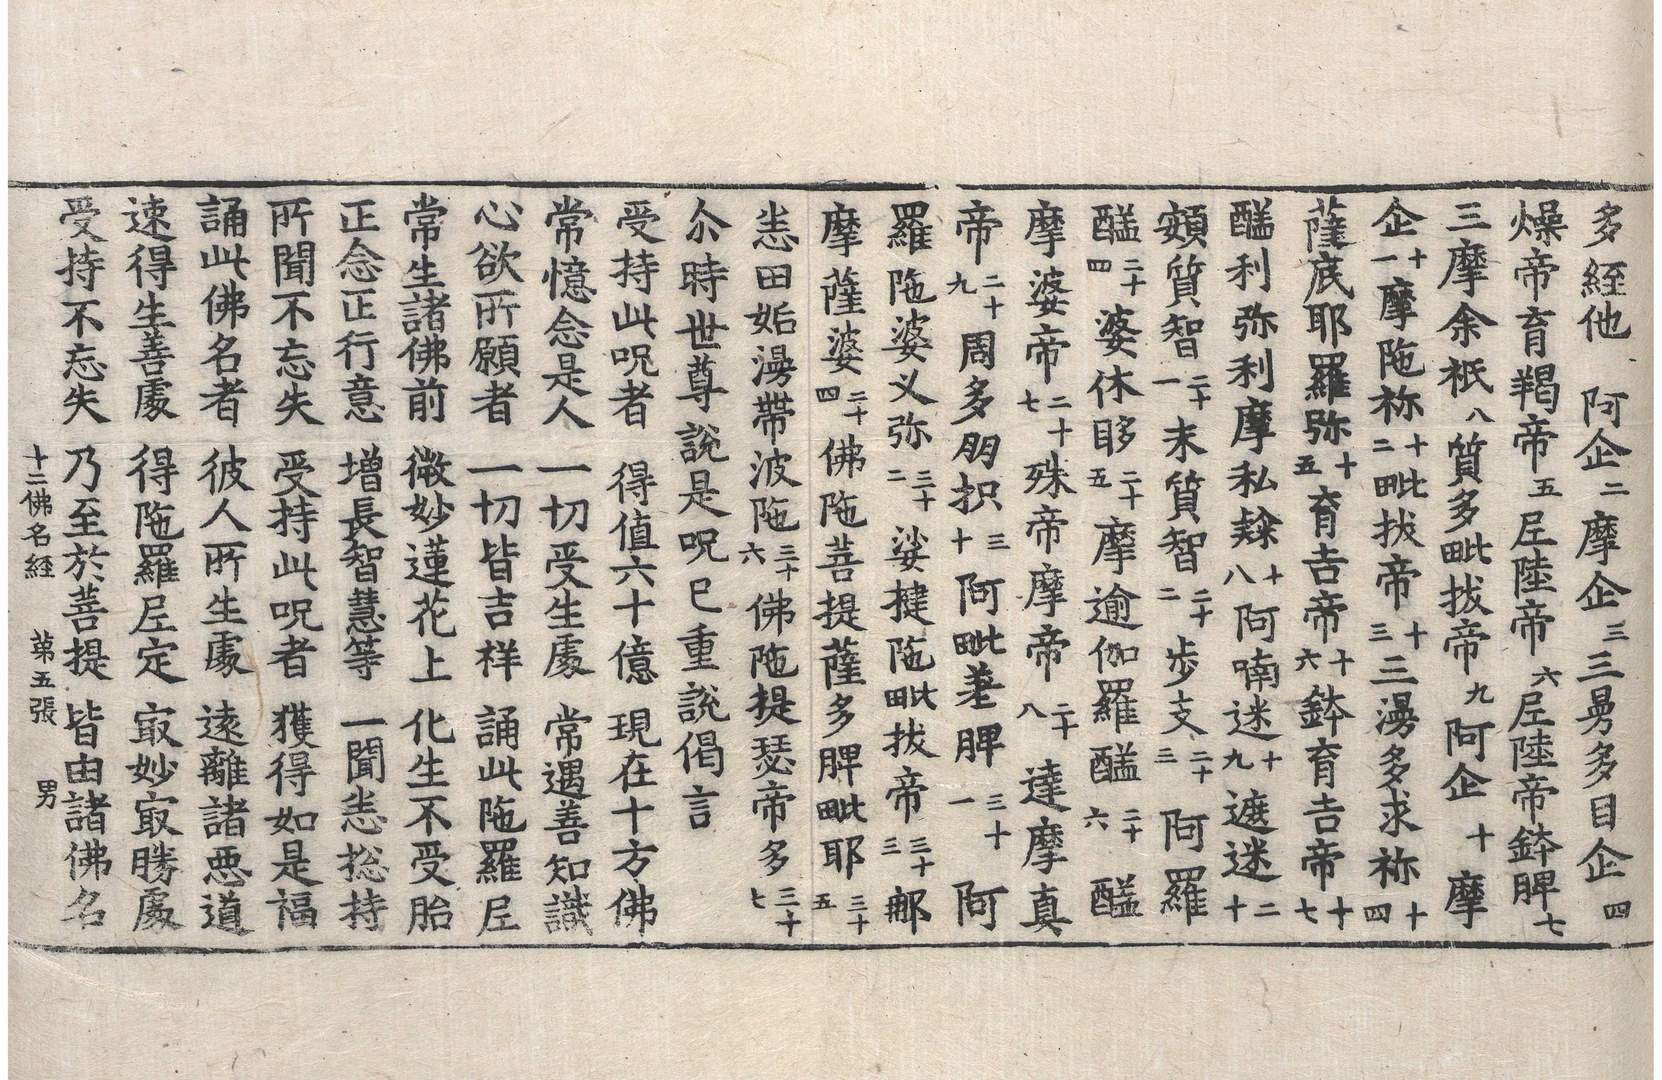 多絰他　阿企二摩企三三曼多目企四
燥帝育羯帝五𡰱陸帝六𡰱陸帝鉢脾七
三摩余祇八質多毗拔帝九阿企十摩
企十一摩陁祢十二毗拔帝十三三湯多求祢十四
薩底耶羅弥十五育吉帝十六鉢育吉帝十七
醯利弥利摩私𨽻十八阿喃迷十九遮迷二十
頞質智二十一末質智二十二步支二十三阿羅
醯二十四婆休𭾱二十五摩逾伽羅醯二十六醯
摩婆帝二十七殊帝摩帝二十八達摩真
帝二十九周多朋抧三十阿毗差脾三十一阿
羅陁婆义弥三十二娑揵陁毗拔帝三十三那
摩薩婆二十四佛陁菩提薩多脾毗耶三十五
恙田姤湯帶波陁三十六佛陁提瑟帝多三十七
尒時世尊說是呪已重說偈言
受持此呪者　得值六十億　現在十方佛
常憶念是人　一切受生處　常遇善知識
心欲所願者　一切皆吉祥　誦此陁羅𡰱
常生諸佛前　微妙蓮花上　化生不受胎
正念正行意　增長智慧等　一聞恙捴持
所聞不忘失　受持此呪者　獲得如是福
誦此佛名者　彼人所生處　遠離諸惡道
速得生善處　得陁羅𡰱定　㝡妙㝡勝處
受持不忘失　乃至於菩提　皆由諸佛名
十二佛名經　苐五張　男